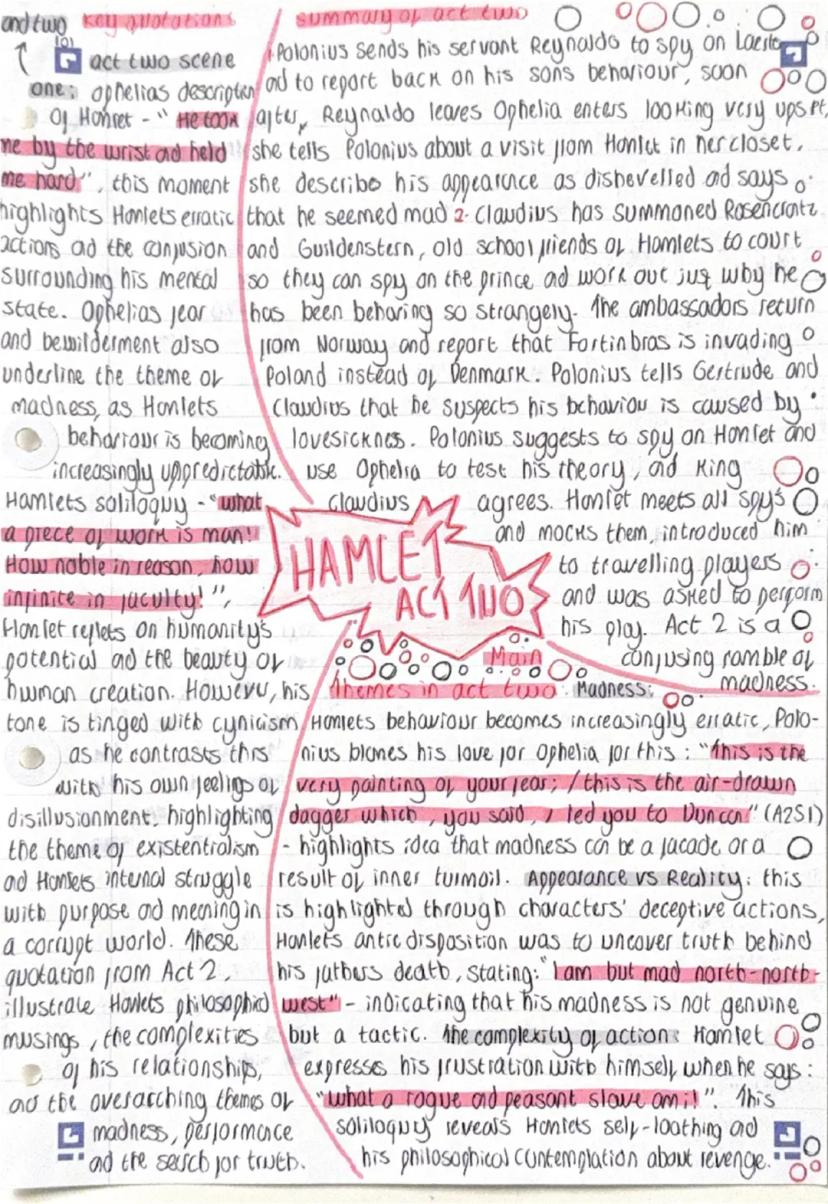 and two key quotations
act two scene
one: ophelias description
of Hamlet - "He took
me by the wrist and held
me hard", this moment
highlights Hamlets erratic
actions ad the confusion
surrounding his mental
state. Ophelias fear
and bewilderment also
underline the theme of
madness, as Hamlets
behaviour is becoming
increasingly unpredictable.
Hamlets soliloquy - "what
a piece of work is man!
How noble in reason, how
infinite in faculty!",
Hamlet reflets on humanity's
potential ad the beauty of
human creation. However, his
tone is tinged with cynicism
as he contrasts this
with his own feelings of
disillusionment, highlighting
the theme of existentialism
ad Hamlets internal struggle
with purpose ad meaning in
a corrupt world. These
quotation from Act 2,
illustrate Hamlets philosophical
musings, the complexities
of his relationships,
ad the overarching themes of
madness, performance
ad the search for truth.
summary of act two
1. Polonius sends his servant Reynaldo to spy on Laertes
ad to report back on his sons behaviour, soon
after, Reynaldo leaves Ophelia enters looking very upset,
she tells Polonius about a visit from Hamlet in her closet.
she describe his appearance as dishevelled ad says
that he seemed mad 2. Claudius has summoned Rosencrantz
and Guildenstern, old school friends of Hamlets to court
so they can spy on the prince ad work out just why he
has been behaving so strangely. The ambassadors return
from Norway and report that Fortinbras is invading
Poland instead of Denmark. Polonius tells Gertrude and
Claudius that he suspects his behaviou is caused by
lovesickness. Polonius suggests to spy on Hamlet and
use Ophelia to test his theory, and King
claudius agrees. Hamlet meets all spy's
and mocks them, introduced him
to travelling players
and was asked to perform
his play. Act 2 is a
confusing ramble of
madness.
HAMLET
ACT TWO
Main
themes in act two: Madness:
Hamlets behaviour becomes increasingly erratic, Polo-
nius blames his love for Ophelia for this: "This is the
very painting of your fear; / this is the air-drawn
dagger which, you said, / led you to Duncan" (A2S1)
- highlights idea that madness can be a facade or a
result of inner turmoil. Appearance vs Reality: this
is highlighted through characters' deceptive actions,
Hamlets antic disposition was to uncover truth behind
his fathers death, stating: "I am but mad north-north-
west" - indicating that his madness is not genuine
but a tactic. The complexity of action: Hamlet
expresses his frustration with himself when he says:
"what a rogue ad peasant slave am i!". This
soliloquy reveals Hamlets self-loathing ad
his philosophical contemplation about revenge.